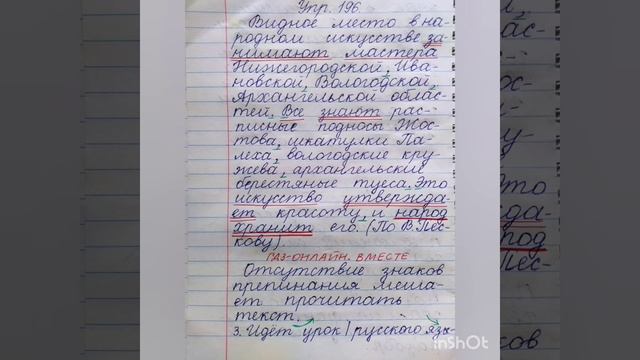 Упр. 196.
Видное место в на-
родном искусстве за-
нимают мастера
Нижегородской, Ива-
новской, Вологодской,
Архангельской облас-
тей. Все знают рас-
писные подносы Жос-
това, шкатулки Па-
леха, вологодские кру-
жева, архангельские
берестяные туеса. Это
искусство утвержда-
ет красоту, и народ
хранит его. (По В. Пес-
кову).
РАЗ-ОНЛАЙН. ВМЕСТЕ
Отсутствие знаков
препинания меша-
ет прочитать
текст.
3. Идёт урок | русского язы-
InShOt